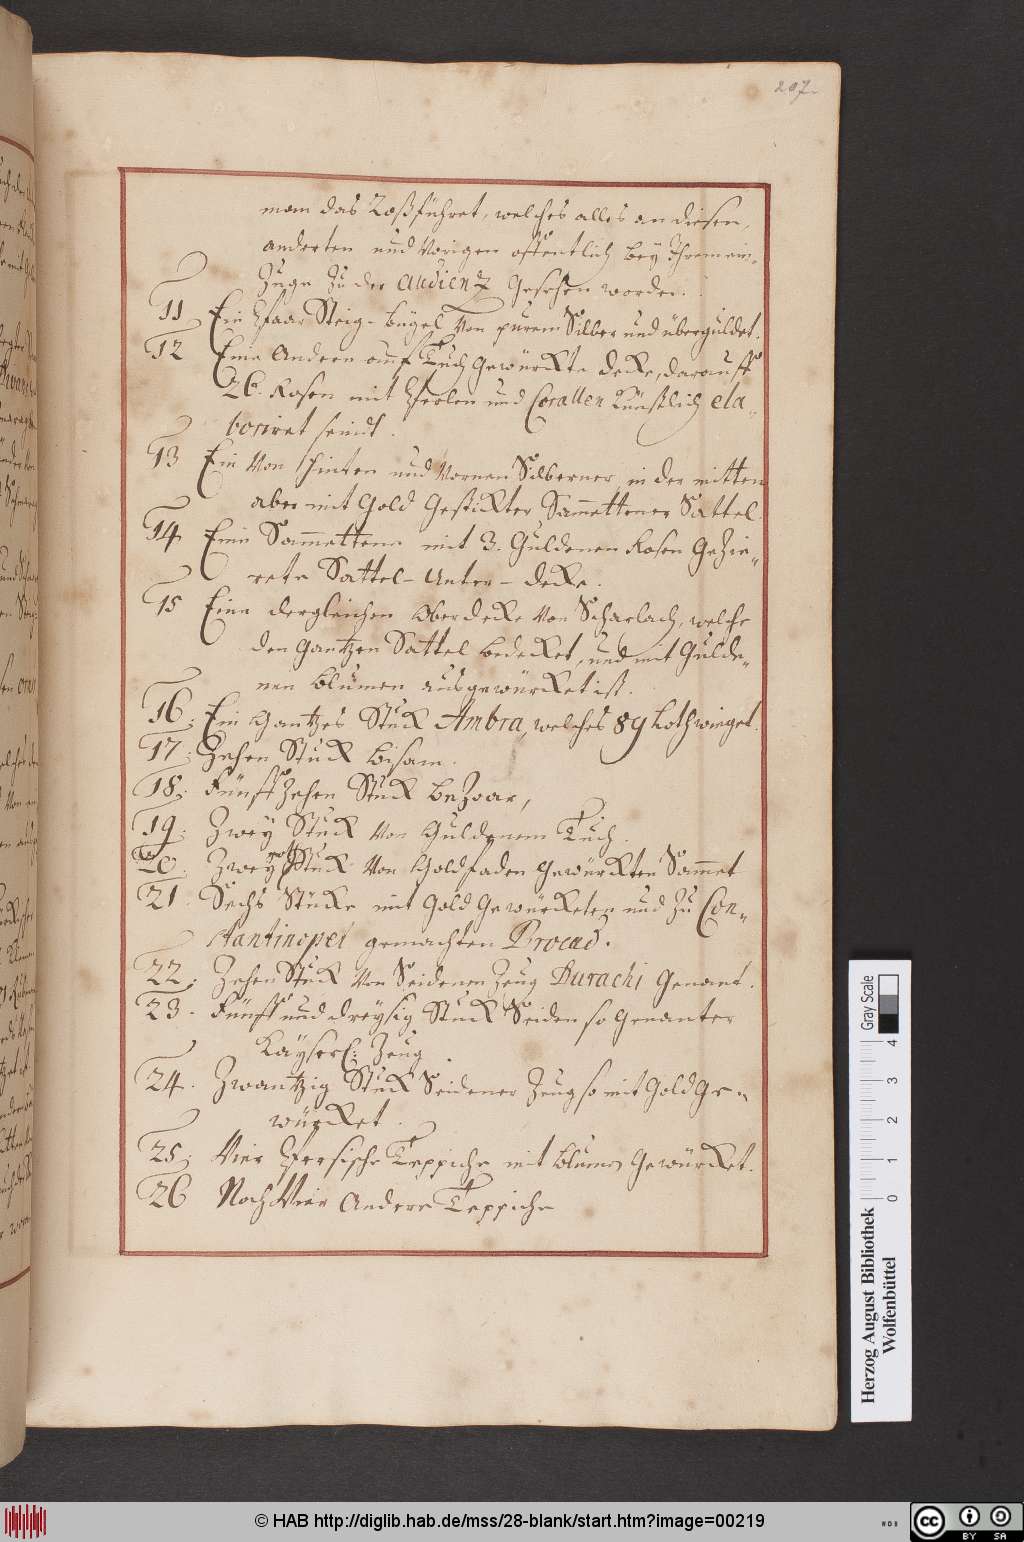 207.
man das Roß führet, welches alles an diesen,
anderten und Vorigen offentlich bey Ihrem ein-
Zuge Zu der Audientz Gesehen worden.
11 Ein Paar Steig-bügel Von purem Silber und überguldet.
12 Eine Andere auf Tuch Gewürckte decke, darauff
26. Rosen mit Perlen und Corallen Künstlich ela-
boriret seindt.
13 Ein Von hinten und Vornen Silberner, in der mitten
aber mit Gold Gestickter Sammettener Sattel.
14 Eine Sammettene mit 3. Guldenen Rosen Gezie-
rete Sattel-Unter-decke.
15 Eine dergleichen Oberdecke Von Scharlach, welche
den Gantzen Sattel bedecket, und mit Gulde-
nen Blumen ausgewürcket ist.
16. Ein Gantzes Stuck Ambra, welches 89 Loth wieget.
17. Zehen Stuck Bisam.
18. Fünffzehen Stuck Bezoar,
19. Zwey Stuck Von Guldenem Tuch.
20. Zwey Stuck Von Goldfaden Gewürckten Sammet
21. Sechs Stücke mit Gold Gewürcketen und Zu Con-
stantinopel gemachten Brocad.
22. Zehen Stuck Von Seidenen Zeug Durachi Genant.
23. Fünff und dreysig Stuck Seiden so Genanter
Kayserl: Zeug.
24. Zwantzig Stuck Seidener Zeug so mit Gold Ge-
würcket.
25. Vier Persische Teppiche mit Blumen Gewürcket.
26 Noch Vier Andere Teppiche
Herzog August Bibliothek
Wolfenbüttel
Gray Scale
0 1 2 3 4
© HAB http://diglib.hab.de/mss/28-blank/start.htm?image=00219
WDB
cc BY SA